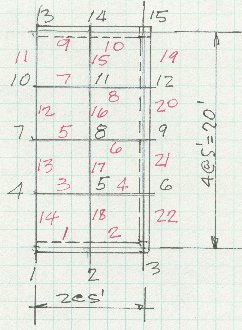 13 14 15
9 10
11 15 19
10 7 11 12
8
12 16 20
7 5 8 9
6
13 17 21
4 3 5 4 6
14 18 22
1 2
1 2 3
2@5'
4@5'=20'